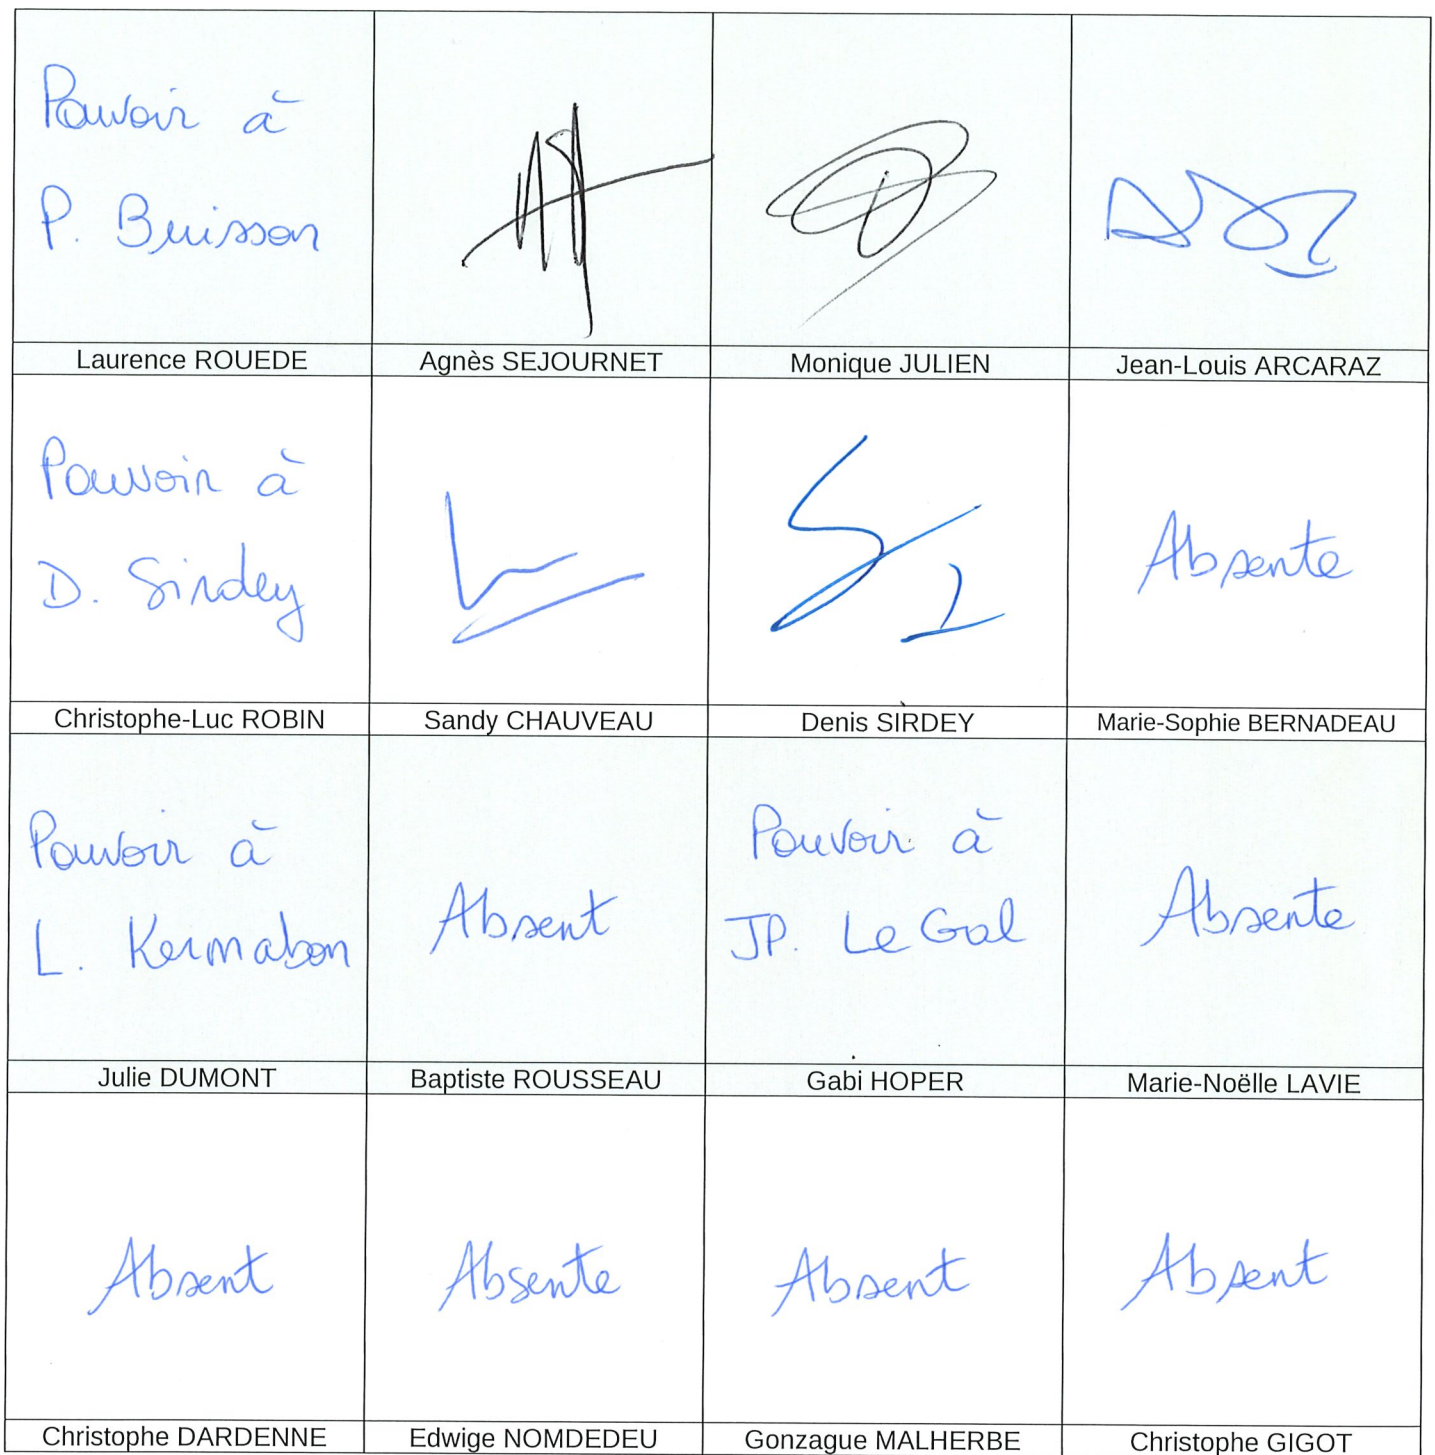 Pouvoir à
P. Buisson
Laurence ROUEDE
Agnès SEJOURNET
Monique JULIEN
Jean-Louis ARCARAZ
Pouvoir à
D. Sirdey
Absente
Christophe-Luc ROBIN
Sandy CHAUVEAU
Denis SIRDEY
Marie-Sophie BERNADEAU
Pouvoir à
L. Kermabon
Absent
Pouvoir à
JP. Le Gal
Absente
Julie DUMONT
Baptiste ROUSSEAU
Gabi HOPER
Marie-Noëlle LAVIE
Absent
Absente
Absent
Absent
Christophe DARDENNE
Edwige NOMDEDEU
Gonzague MALHERBE
Christophe GIGOT